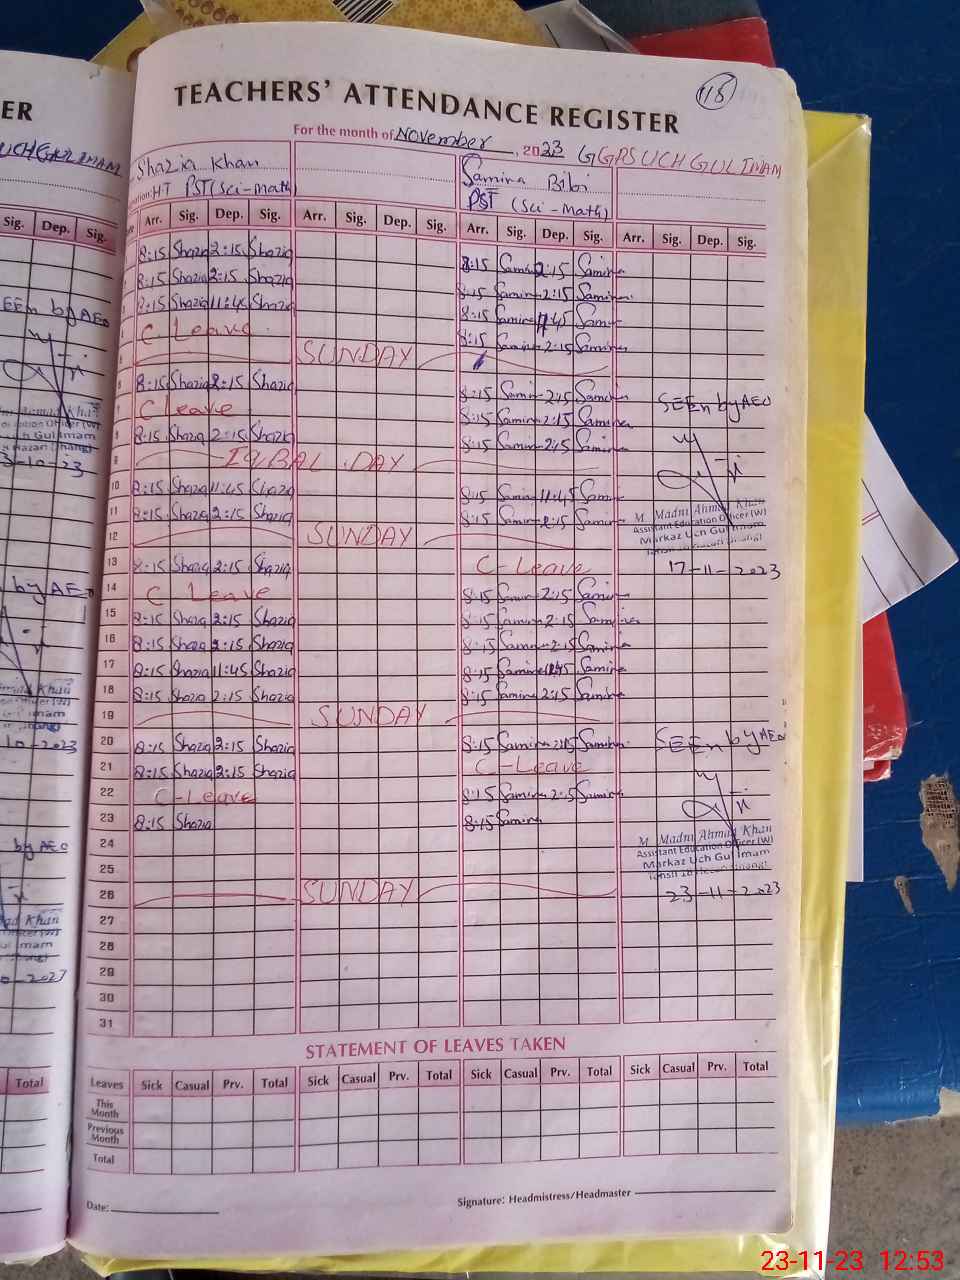 ER
UCH GUL IMAM
Sig. Dep. Sig.
SEEn by AEO
by AEO
10-2023
by AEO
Total
TEACHERS' ATTENDANCE REGISTER
118
For the month of November, 2023 GGPS UCH GUL IMAM
Shazia Khan Samina Bibi
HT PST (Sci-math) PST (Sci-Math)
Arr. Sig. Dep. Sig. Arr. Sig. Dep. Sig. Arr. Sig. Dep. Sig. Arr. Sig. Dep. Sig.
8:15 Shazia 2:15 Shazia 8:15 Samina 2:15 Samina
8:15 Shazia 2:15 Shazia 8:15 Samina 2:15 Samina
8:15 Shazia 11:45 Shazia 8:15 Samina 11:45 Samina
C. Leave 8:15 Samina 2:15 Samina
SUNDAY
8:15 Shazia 2:15 Shazia 8:15 Samina 2:15 Samina
C Leave 8:15 Samina 2:15 Samina
8:15 Shazia 2:15 Shazia 8:15 Samina 2:15 Samina
9 IQBAL DAY
10 8:15 Shazia 11:45 Shazia 8:15 Samina 11:45 Samina
11 8:15 Shazia 2:15 Shazia 8:15 Samina 2:15 Samina
12 SUNDAY
13 8:15 Shazia 2:15 Shazia C-Leave
14 C Leave 8:15 Samina 2:15 Samina
15 8:15 Shazia 2:15 Shazia 8:15 Samina 2:15 Samina
16 8:15 Shazia 2:15 Shazia 8:15 Samina 2:15 Samina
17 8:15 Shazia 11:45 Shazia 8:15 Samina 11:45 Samina
18 8:15 Shazia 2:15 Shazia 8:15 Samina 2:15 Samina
19 SUNDAY
20 8:15 Shazia 2:15 Shazia 8:15 Samina 2:15 Samina
21 8:15 Shazia 2:15 Shazia C-Leave
22 C-Leave 8:15 Samina 2:15 Samina
23 8:15 Shazia 8:15 Samina
24
25
26 SUNDAY
27
28
29
30
31
SEEn by AEO
M Madni Ahmad Khan
Assistant Education Officer (W)
Markaz Uch Gul Imam
17-11-2023
SEEn by AEO
M Madni Ahmad Khan
Assistant Education Officer (W)
Markaz Uch Gul Imam
23-11-2023
STATEMENT OF LEAVES TAKEN
Leaves Sick Casual Prv. Total Sick Casual Prv. Total Sick Casual Prv. Total Sick Casual Prv. Total
This Month
Previous Month
Total
Date: Signature: Headmistress/Headmaster
23-11-23 12:53